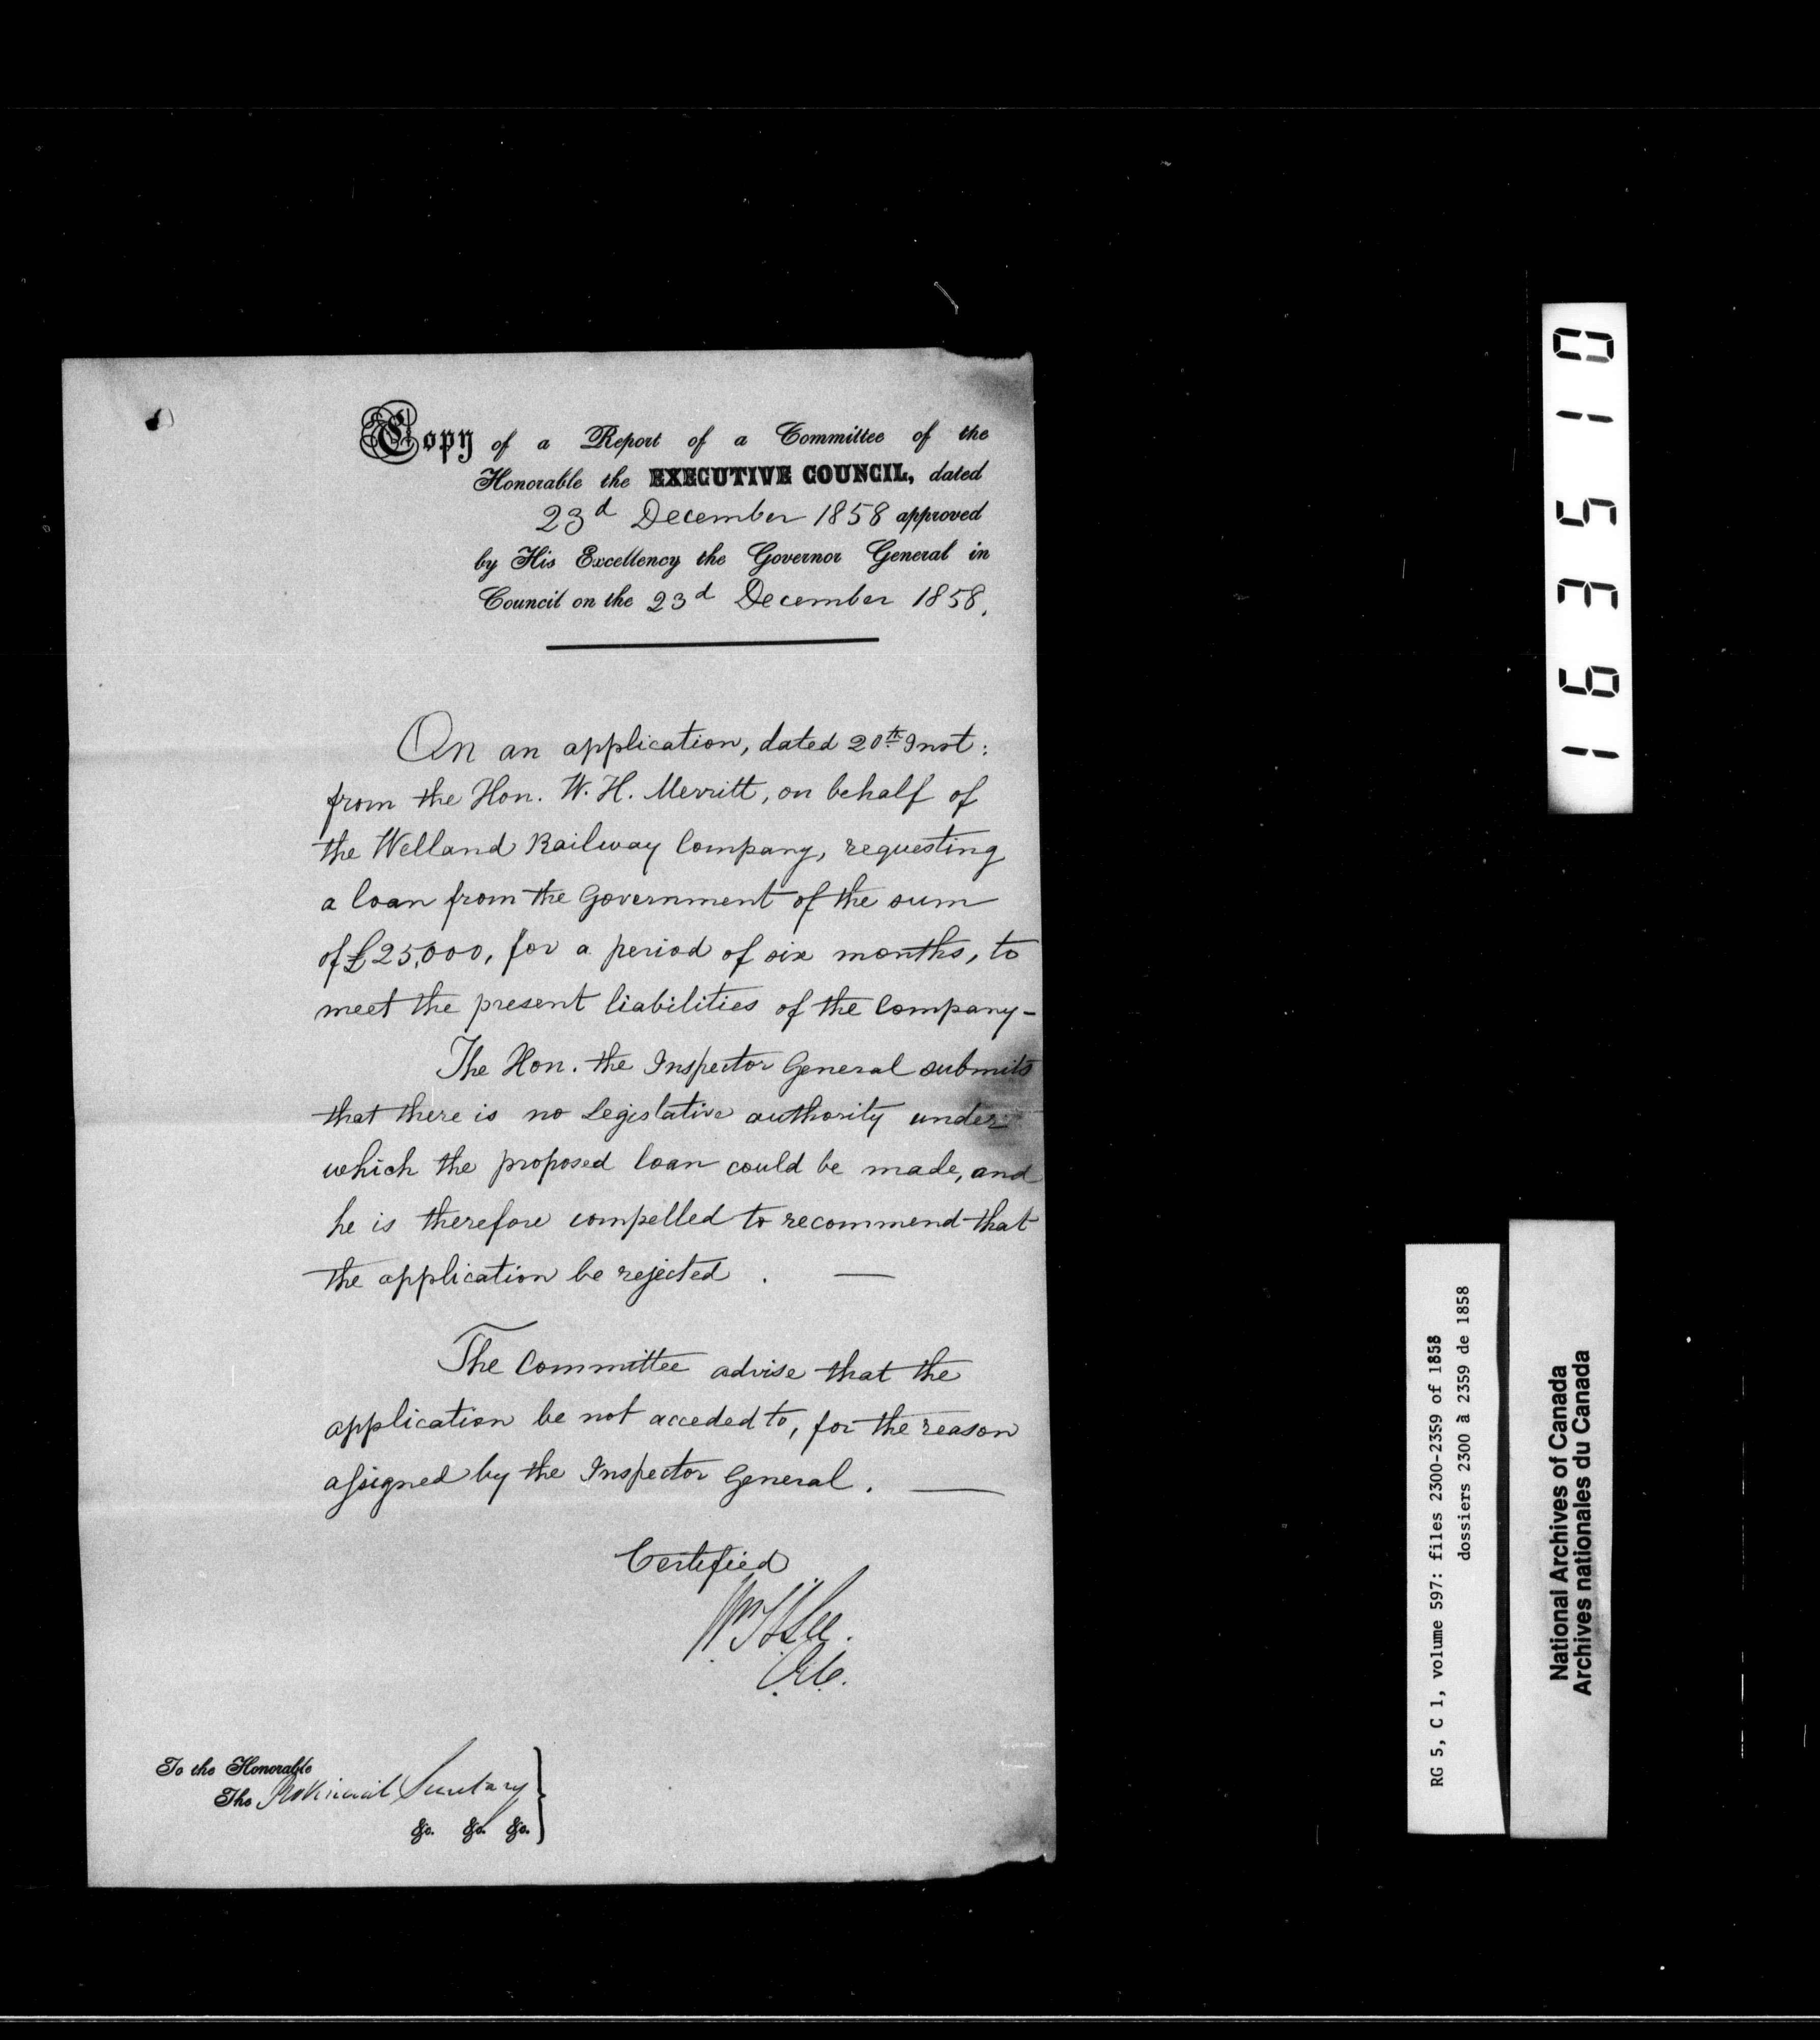 Copy of a Report of a Committee of the
Honorable the EXECUTIVE COUNCIL, dated
23d December 1858 approved
by His Excellency the Governor General in
Council on the 23d December 1858.
On an application, dated 20th Inst:
from the Hon. W. H. Merritt, on behalf of
the Welland Railway Company, requesting
a loan from the Government of the sum
of £25,000, for a period of six months, to
meet the present liabilities of the Company-
The Hon. the Inspector General submits
that there is no Legislative authority under
which the proposed loan could be made, and
he is therefore compelled to recommend that
the application be rejected. —
The Committee advise that the
application be not acceded to, for the reason
assigned by the Inspector General. —
Certified
Wm H Lee.
C.E.C.
To the Honorable
The Provincial Secretary
&c. &c. &c.
163510
RG 5, C 1, volume 597: files 2300-2359 of 1858
dossiers 2300 à 2359 de 1858
National Archives of Canada
Archives nationales du Canada